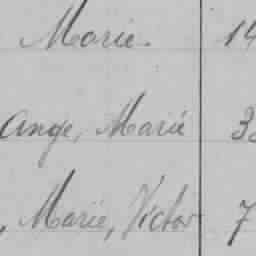 Marie. 14
Ange, Marie 3
, Marie, Victor 7